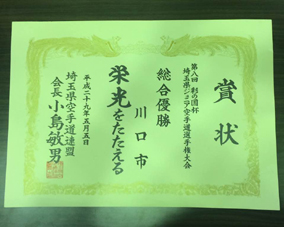 賞状
第八回彩の国杯
埼玉県ジュニア空手道選手権大会
総合優勝
川口市
栄光をたたえる
平成二十九年五月五日
埼玉県空手道連盟
会長 小島敏男